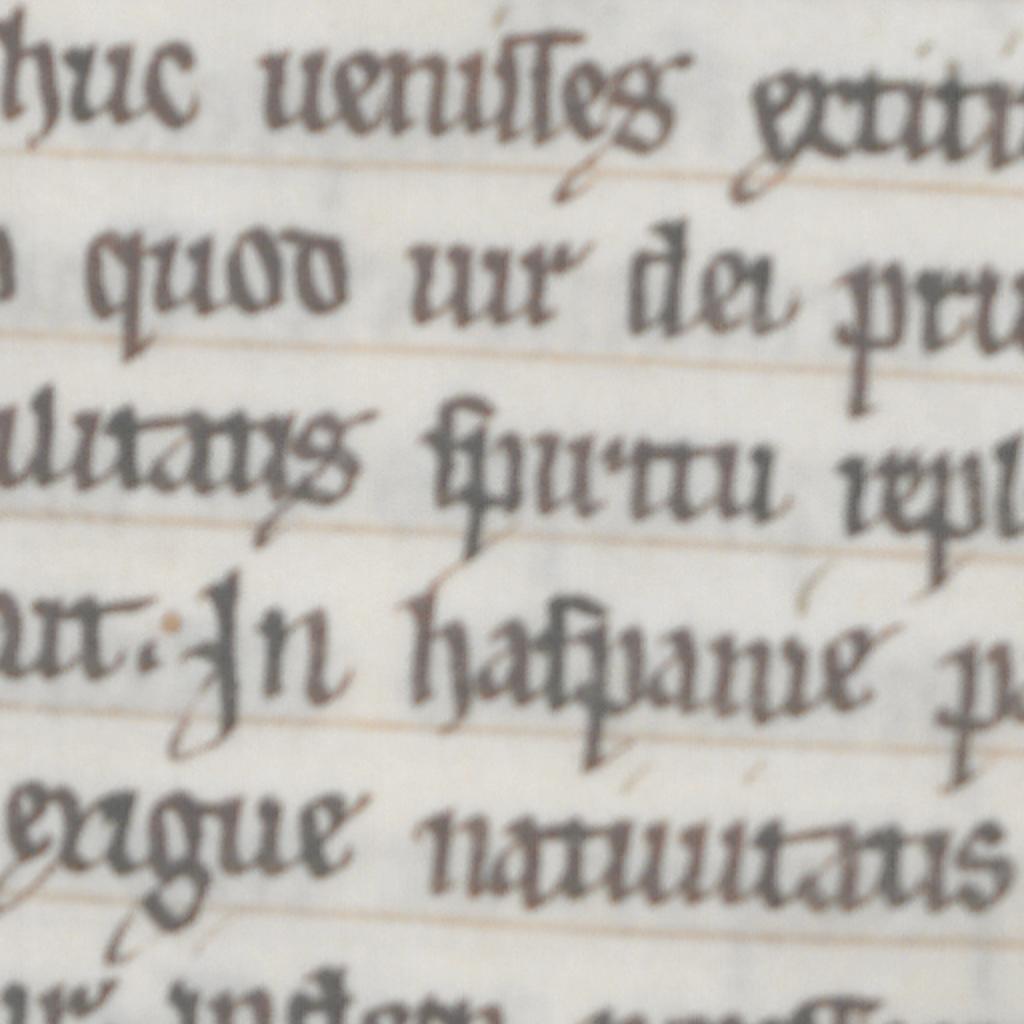 huc uenisses extiti
quod uir dei pru
ulitatis spiritu repl
In haspanie
exigue natiuitatis